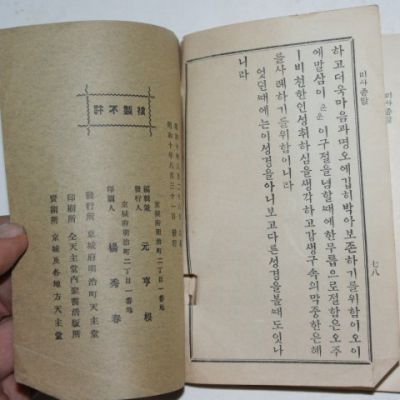 미사죵말
七八
하고더욱마음과명오에깁히박아보존하기를위함이오이
에말삼이 운운 이구절을념할때에한무릅으로절함은오주
ㅣ비천한인성취하심을생각하고강생구속의막중한은혜
를사례하기를위함이니라
엇던때에는이성경을아니보고다른성경을볼때도잇나
니라
複製不許
昭和十年八月三十日 發行
京城府明治町二丁目一番地
編輯兼發行人 元亨根
京城府明治町二丁目一番地
印刷人 楊秀春
發行所 京城府明治町天主堂
印刷所 仝天主堂內聖書活版所
賣捌所 京城及各地方天主堂